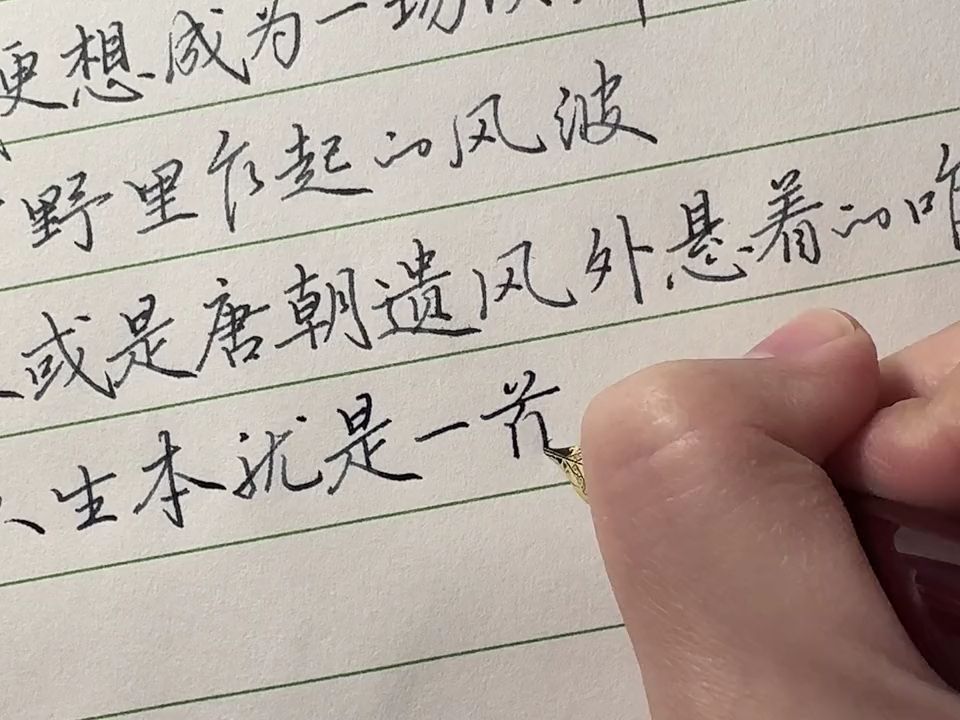 更想成为一场
野里乍起的风波
或是唐朝遗风外悬着的
人生本就是一首